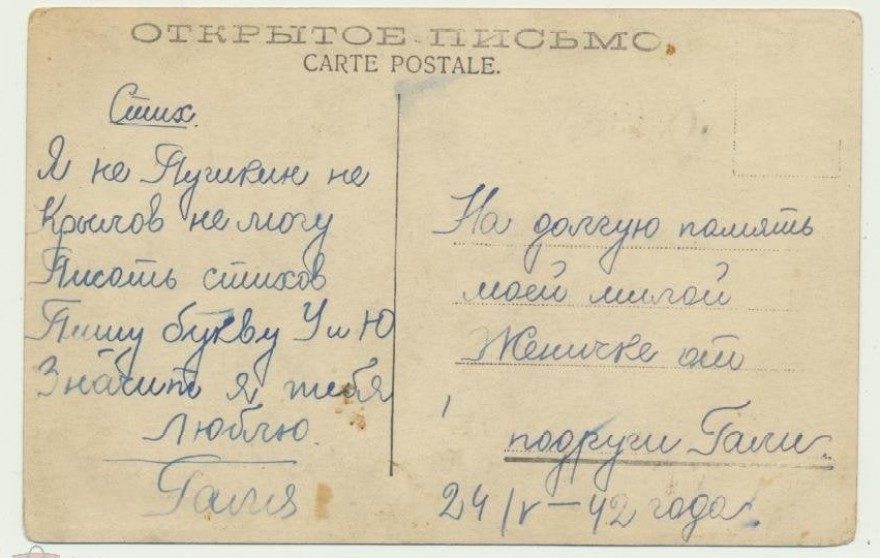 ОТКРЫТОЕ ПИСЬМО.
CARTE POSTALE.
Стих.
Я не Пушкин не
Крылов не могу
Писать стихов
Пишу букву У и Ю
Значит я тебя
Люблю.
Галя
На долгую память
моей милой
Женичке от
подруги Гали.
24/V-42 года.